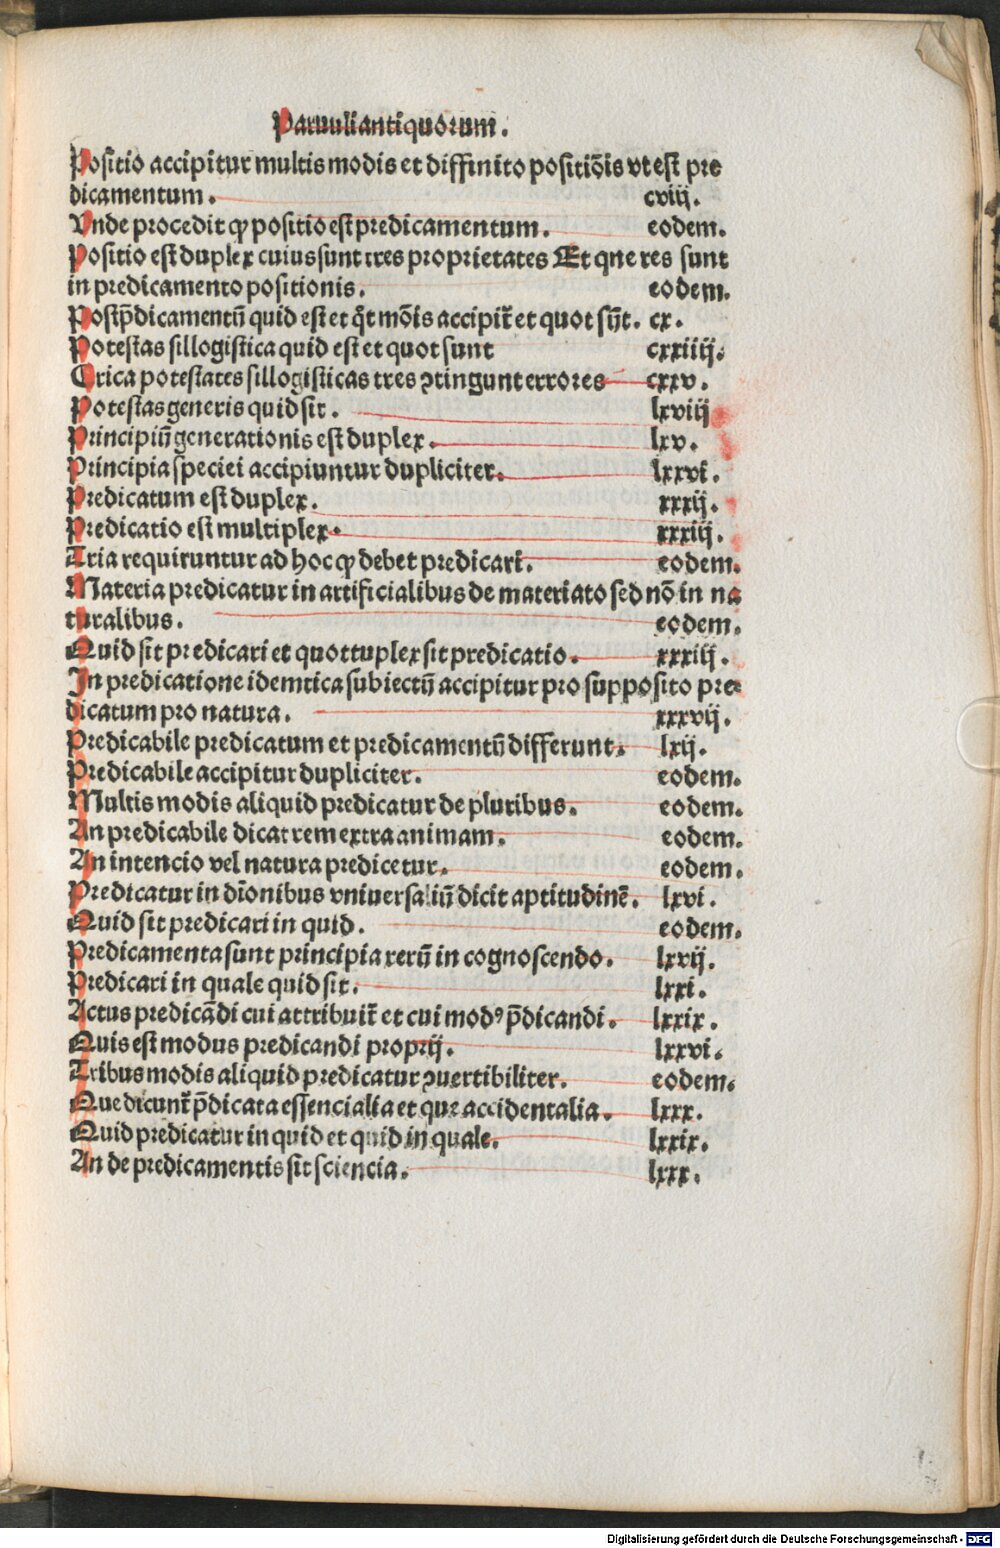 Paruuli antiquorum.
Positio accipitur multis modis et diffinito positiōis vt est pre
dicamentum. cviij.
Vnde procedit ꝙ positio est predicamentum. eodem.
Positio est duplex cuius sunt tres proprietates Et que res sunt
in predicamento positionis. eodem.
Postp̄dicamentū quid est et q̄t mōis accipit̄ et quot sūt. cx.
Potestas sillogistica quid est et quot sunt cxxiiij.
Circa potestates sillogisticas tres ꝯtingunt errores cxxv.
Potestas generis quid sit. lxviij
Principiū generationis est duplex. lxv.
Principia speciei accipiuntur dupliciter. lxxvi.
Predicatum est duplex. xxxij.
Predicatio est multiplex. xxxiij.
Tria requiruntur ad hoc ꝙ debet predicari. eodem.
Materia predicatur in artificialibus de materiato sed nō in na
turalibus. eodem.
Quid sit predicari et quottuplex sit predicatio. xxxiij.
In predicatione idemtica subiectū accipitur pro supposito pre
dicatum pro natura. xxxvij.
Predicabile predicatum et predicamentū differunt. lxij.
Predicabile accipitur dupliciter. eodem.
Multis modis aliquid predicatur de pluribus. eodem.
An predicabile dicat rem extra animam. eodem.
An intencio vel natura predicetur. eodem.
Predicatur in dīonibus vniuersaliū dicit aptitudinē. lxvi.
Quid sit predicari in quid. eodem.
Predicamenta sunt principia rerū in cognoscendo. lxvij.
Predicari in quale quid sit. lxxi.
Actus predicādi cui attribuit̄ et cui modꝰ p̄dicandi. lxxix.
Quis est modus predicandi proprij. lxxvi.
Tribus modis aliquid predicatur ꝯuertibiliter. eodem.
Que dicunt̄ p̄dicata essencialia et que accidentalia. lxxx.
Quid predicatur in quid et quid in quale. lxxix.
An de predicamentis sit sciencia. lxxx.
Digitalisierung gefördert durch die Deutsche Forschungsgemeinschaft - DFG